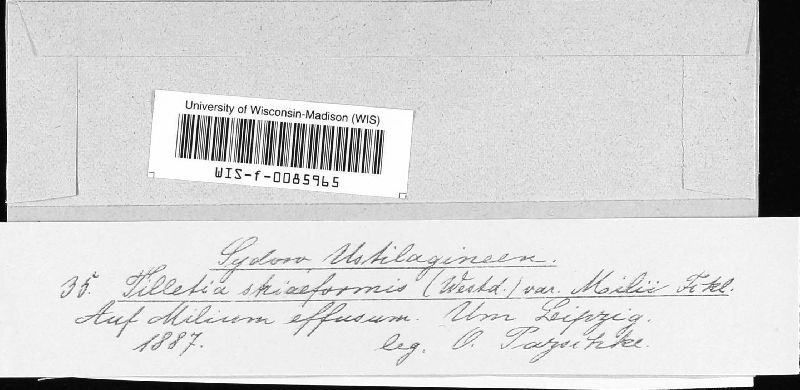 University of Wisconsin-Madison (WIS)
WIS-f-0085965
Sydow, Ustilagineen.
35. Tilletia skiaeformis (Westd.) var. Milii Fckl.
Auf Milium effusum. Um Leipzig.
1887. leg. O. Pazschke.